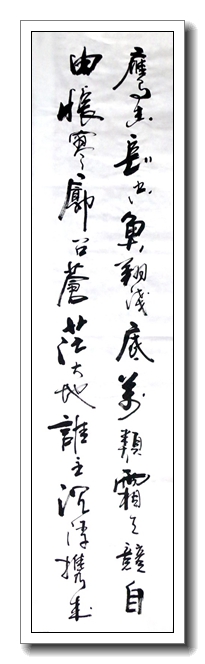 鷹击長空魚翔浅底萬類霜天競自
由悵寥廓问蒼茫大地誰主沉浮携来